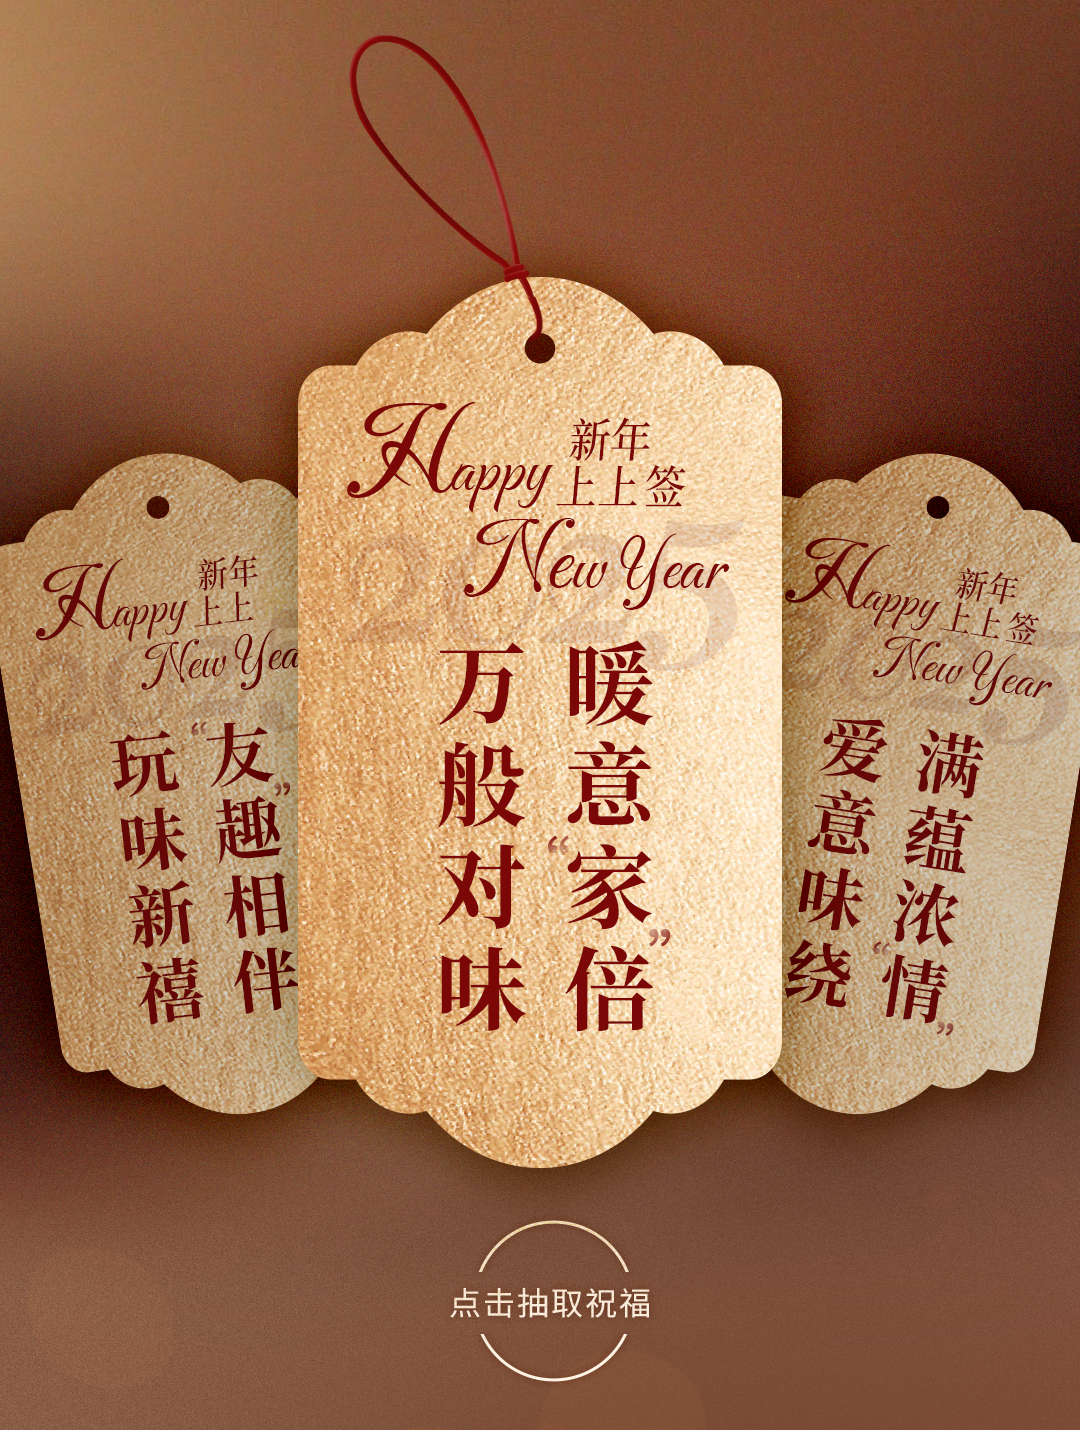 Happy
新年
上上签
New Year
2025
暖意“家”倍
万般对味
Happy
新年
上上
New Yea
“友”趣相伴
玩味新禧
Happy
新年
上上签
New Year
满蕴浓“情”
爱意味绕
点击抽取祝福